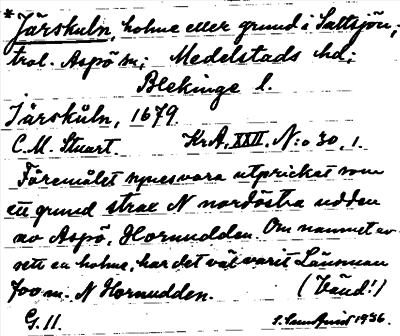 *Järskuln, holme eller grund i Saltsjön,
trol. Aspö sn; Medelstads hd;
Blekinge l.
Järskuln, 1679
C.M. Stuart. KrA, XXII, N:o 30, 1.
Föremålet synes vara utprickat som
ett grund strax N nordöstra udden
av Aspö, Hornudden. Om namnet av-
sett en holme, har det väl varit Länsman
700 m. N Hornudden. (Vänd!)
G. 11. 1936.